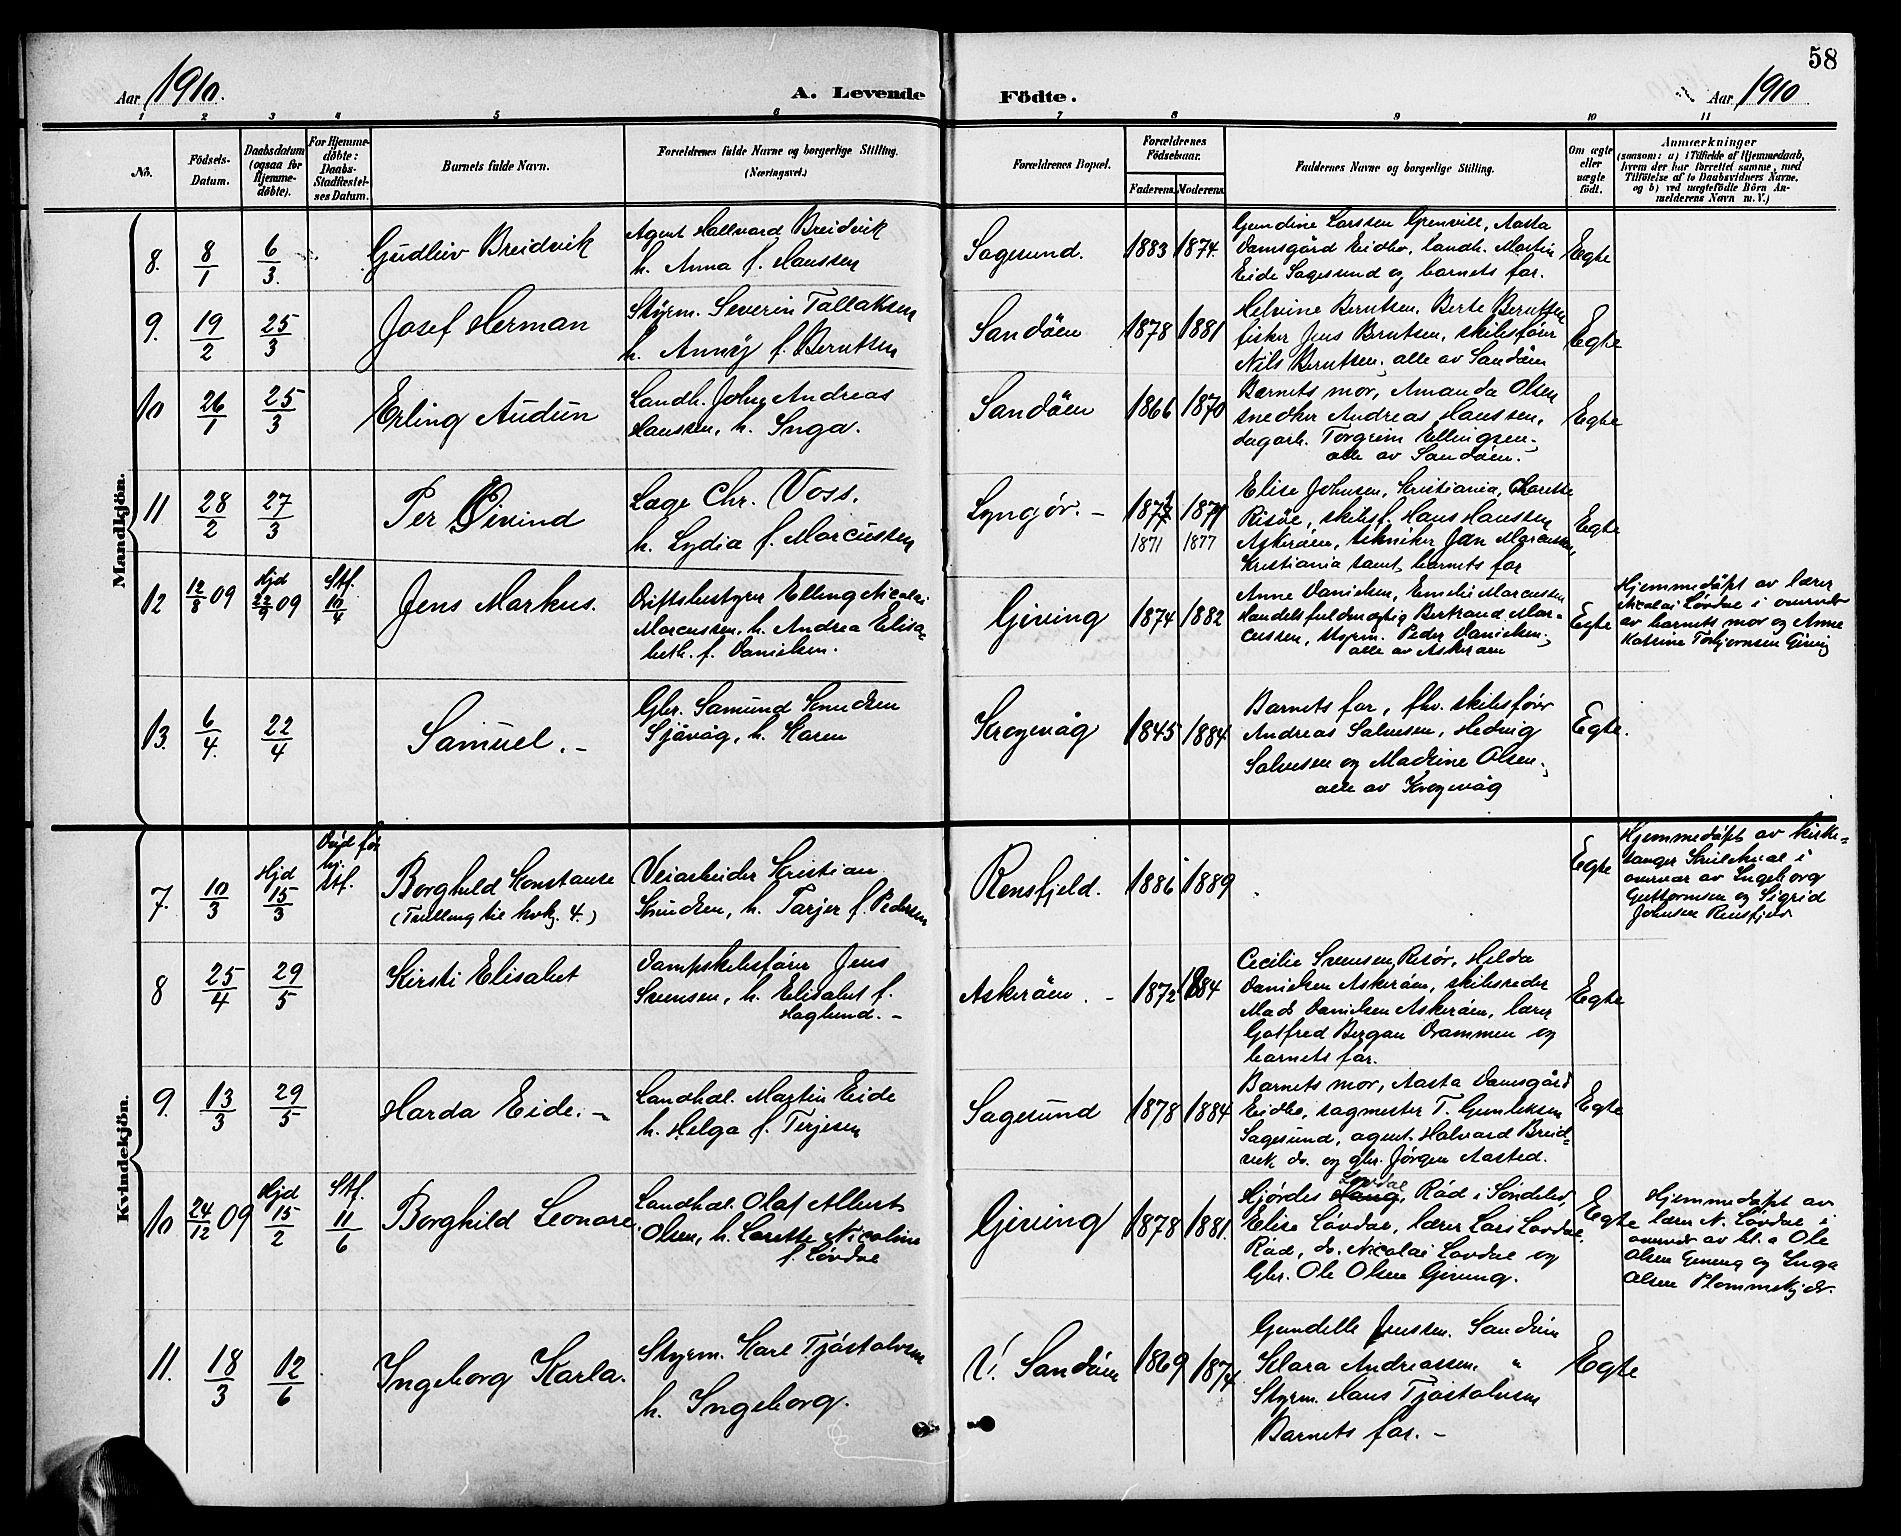 58
Aar 1910.
A. Levende Födte.
Aar 1910
1 2 3 4 5 6 7 8 9 10 11
No.
Födsels-
Datum.
Daabsdatum
(ogsaa for
Hjemme-
döbte).
For Hjemme-
döbte:
Daabs-
Stadfæstel-
ses Datum.
Barnets fulde Navn.
Forældrenes fulde Navne og borgerlige Stilling.
(Næringsvei.)
Forældrenes Bopæl.
Forældrenes
Födselsaar.
Faderens.
Moderens.
Faddernes Navne og borgerlige Stilling.
Om ægte
eller
uægte
født.
Anmærkninger
(saasom: a) i Tilfælde af Hjemmedaab,
hvem der har forrettet samme, med
Tilföielse af to Daabsvidners Navne,
og b) ved uægtefödte Börn An-
melderens Navn m. V.)
Mandkjön.
8. 8/1 6/3. Gudleiv Breidvik
Agent Hallvard Breidvik
h. Anna f. Hanssen
Sagesund. 1883 1874.
Gundine Larssen Grenvill, Aasta
Damsgård Eidbo, landh. Martin
Eide Sagesund og barnets far.
Egte
9. 19/2 25/3 Josef Herman
Styrm. Severin Tallaksen
h. Anny f. Berntsen
Sandöen 1878 1881
Helvine Berntsen, Berte Berntsen
fisker Jens Berntsen, skibsfører
Nils Berntsen, alle av Sandöen
Egte
10 26/1 25/3 Erling Audun
Landh. John Andreas
Hanssen, h. Inga.
Sandöen 1866 1870
Barnets mor, Amanda Olsen
snedker Andreas Hanssen,
dagarb. Torgrim Ellingsen,
alle av Sandöen.
Egte
11 28/2 27/3 Per Øivind
Læge Chr. Voss.
h. Lydia f. Marcussen
Lyngör. –
1871 1877
Elise Johnsen, Kristiania,
Risöe, skibsf. Hans Hanssen
Askeröen, tekniker Jan Marcussen,
Kristiania samt barnets far
Egte
12 12/8 09 Hjd 09 Stf. 10/4 Jens Markus.
Driftsbestyrer Elling Nicolai
Marcussen, h. Andrea Elisa-
beth. f. Danielsen.
Gjeving 1874 1882
Anne Danielsen, Emelie Marcussen
Handelsfuldmægtig Bertrand Mar-
cussen, styrm. Peder Danielsen,
alle av Askeröen
Egte
Hjemmedöpt av lærer
Nicolai Lövdal i overvær
av barnets mor og Anne
Katrine Torbjörnsen Gjeving
13. 6/4. 22/4 Samuel. –
Gbr. Samund Knudsen
Sjåvåg, h. Karen
Krogvåg 1845 1884
Barnets far, fhv. skibsfører
Andreas Salvesen, Hedvig
Salvesen og Madsine Olsen,
alle av Krogvåg
Egte.
Kvindekjön.
7. 10/3 Hjd 15/3 Död før
Stf.
Borghild Konstanse
(Tvilling til kvkj. 4.)
Veiarbeider Kristian
Knudsen, h. Tarjer f. Pedersen
Rensfjeld. 1886 1889
Egte
Hjemmedöpt av kirke-
sanger i
overvær av Ingeborg
Guttormsen og Sigrid
Johnsen Rensfjeld
8 25/4 29/5 Kirsti Elisabet
Dampskibsfører Jens
Svensen, h. Elisabet f.
Haglund. –
Askeröen. – 1872 1884
Cecilie Svensen, Risör, Helda
Danielsen Askeröen, skibsreder
Mads Danielsen Askeröen, lærer
Gotfred Bergan Drammen og
barnets far.
Egte
9. 13/3 29/5 Harda Eide. –
Landhdl. Martin Eide
h. Helga f. Terjesen
Sagesund 1878 1884
Barnets mor, Aasta Damsgård
Eidbo, sagmester T. Gunleksen
Sagesund, agent. Halvard Breid-
vik do. og gbr. Jörgen Aasted.
Egte
10 24/12 09 Hjd 15/2 Stf. 11/6 Borghild Leonore
Landhdl. Olaf Albert
Olsen, h. Lorette Nicoline
f. Lövdal
Gjeving 1878 1881.
Lövdal
Hjördis Haugs, Råd i Söndeled,
Elise Lövdal, lærer Lars Lövdal
Råd, do. Nicolai Lövdal og
Gbr. Ole Olsen Gjeving.
Egte
Hjemmedöpt av
lærer N. Lövdal i
overvær av bl. a Ole
Olsen Gjeving og Inga
Olsen Plommekjær.
11. 18/3 12/6 Ingeborg Karla.
Styrm. Karl Tjöstolvsen
h. Ingeborg.
V. Sandöen 1869 1874
Gundelle Jenssen. Sandöen
Klara Andreassen. "
Styrm. Hans Tjöstolvsen
Barnets far. –
Egte